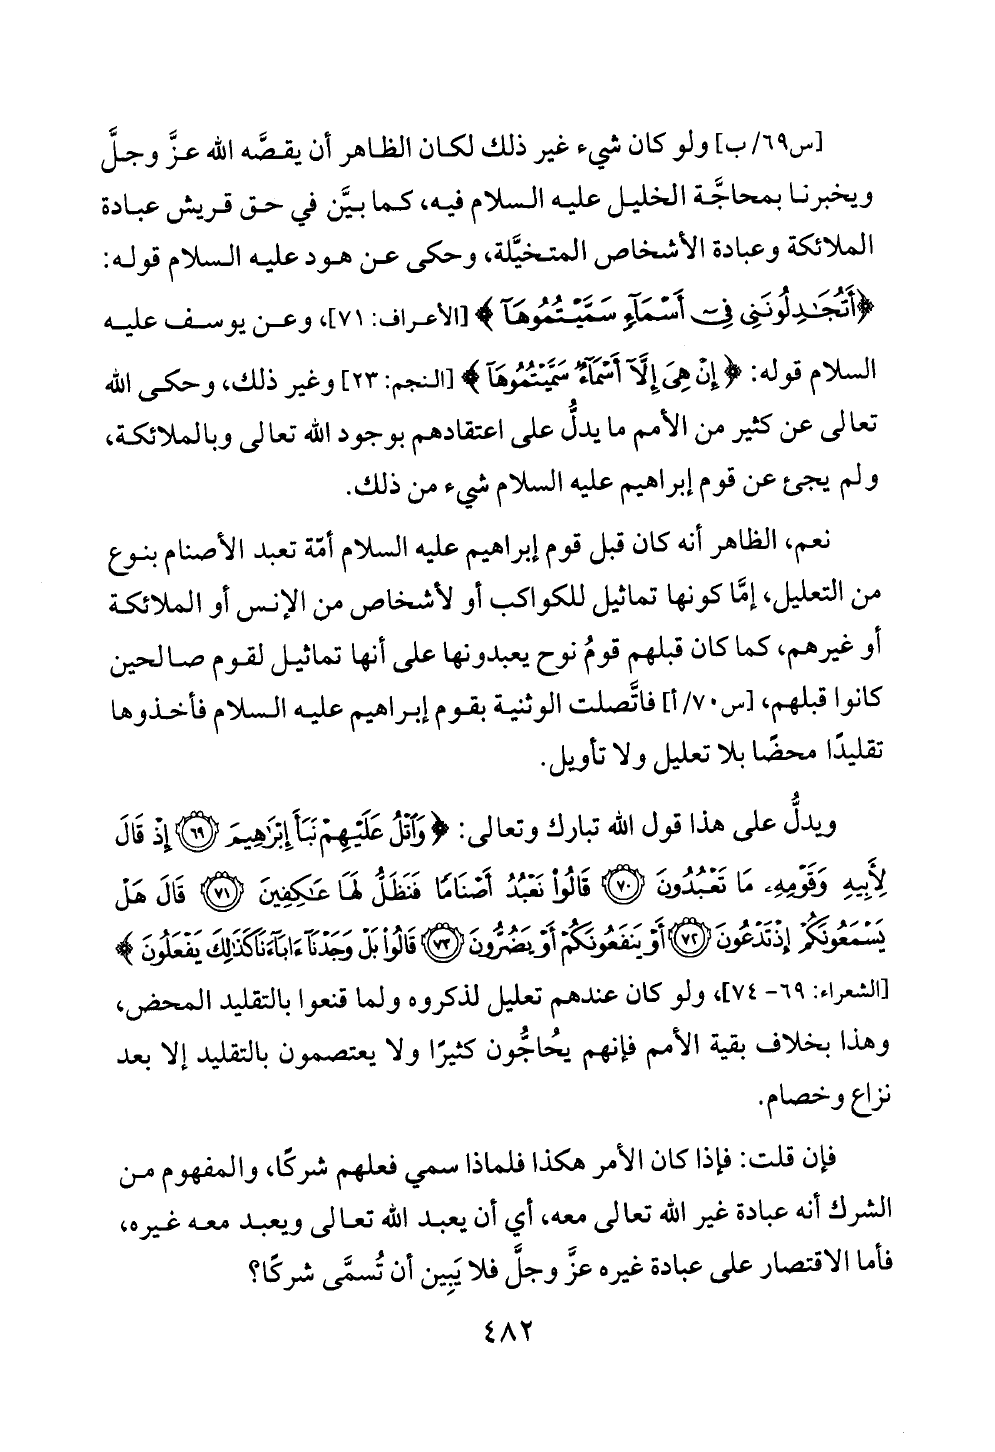 [س٦٩/ ب] ولو كان شيء غير ذلك لكان الظاهر أن يقصَّه الله عزَّ وجلَّ
ويخبرنا بمحاجَّة الخليل عليه السلام فيه، كما بيَّن في حق قريش عبادة
الملائكة وعبادة الأشخاص المتخيَّلة، وحكى عن هود عليه السلام قوله:
﴿أَتُجَٰدِلُونَنِي فِىٓ أَسْمَآءٍ سَمَّيْتُمُوهَآ﴾ [الأعراف: ٧١]، وعن يوسف عليه
السلام قوله: ﴿إِنْ هِىَ إِلَّآ أَسْمَآءٌ سَمَّيْتُمُوهَآ﴾ [النجم: ٢٣] وغير ذلك، وحكى الله
تعالى عن كثير من الأمم ما يدلُّ على اعتقادهم بوجود الله تعالى وبالملائكة،
ولم يجئ عن قوم إبراهيم عليه السلام شيء من ذلك.
نعم، الظاهر أنه كان قبل قوم إبراهيم عليه السلام أمّة تعبد الأصنام بنوع
من التعليل، إمَّا كونها تماثيل للكواكب أو لأشخاص من الإنس أو الملائكة
أو غيرهم، كما كان قبلهم قومُ نوح يعبدونها على أنها تماثيل لقوم صالحين
كانوا قبلهم، [س٧٠/ أ] فاتَّصلت الوثنية بقوم إبراهيم عليه السلام فأخذوها
تقليدًا محضًا بلا تعليل ولا تأويل.
ويدلُّ على هذا قول الله تبارك وتعالى: ﴿وَٱتْلُ عَلَيْهِمْ نَبَأَ إِبْرَٰهِيمَ ٦٩ إِذْ قَالَ
لِأَبِيهِ وَقَوْمِهِۦ مَا تَعْبُدُونَ ٧٠ قَالُوا۟ نَعْبُدُ أَصْنَامًا فَنَظَلُّ لَهَا عَٰكِفِينَ ٧١ قَالَ هَلْ
يَسْمَعُونَكُمْ إِذْ تَدْعُونَ ٧٢ أَوْ يَنفَعُونَكُمْ أَوْ يَضُرُّونَ ٧٣ قَالُوا۟ بَلْ وَجَدْنَآ ءَابَآءَنَا كَذَٰلِكَ يَفْعَلُونَ﴾
[الشعراء: ٦٩- ٧٤]، ولو كان عندهم تعليل لذكروه ولما قنعوا بالتقليد المحض،
وهذا بخلاف بقية الأمم فإنهم يحُاجُّون كثيرًا ولا يعتصمون بالتقليد إلا بعد
نزاع وخصام.
فإن قلت: فإذا كان الأمر هكذا فلماذا سمي فعلهم شركًا، والمفهوم من
الشرك أنه عبادة غير الله تعالى معه، أي أن يعبد الله تعالى ويعبد معه غيره،
فأما الاقتصار على عبادة غيره عزَّ وجلَّ فلا يَبِين أن تُسمَّى شركًا؟
٤٨٢